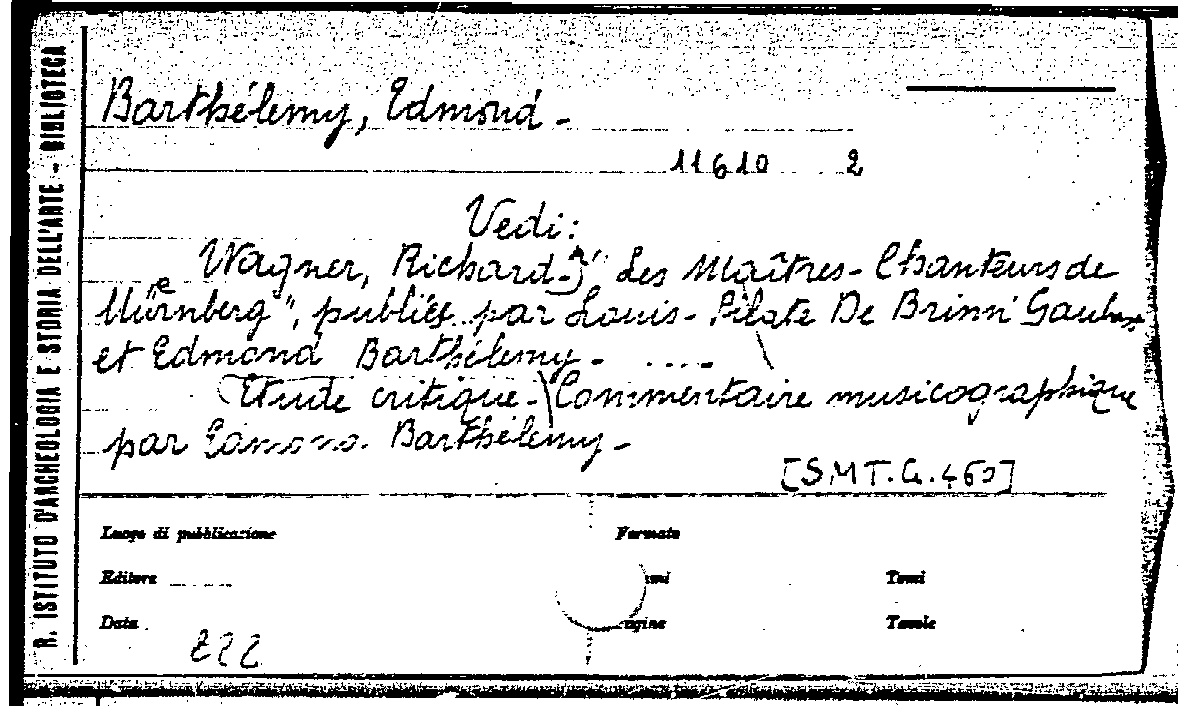 R. ISTITUTO D'ARCHEOLOGIA E STORIA DELL'ARTE - BIBLIOTECA
Barthélemy, Edmond -
11610 2
Vedi:
Wagner, Richard - "Les Maîtres-Chanteurs de
Nürnberg", publiés par Louis-Pilate De Brinn' Gaubast
et Edmond Barthélemy - ....
Etude critique - Commentaire musicographique
par Edmond Barthélemy -
[SMT.G.460]
Luogo di pubblicazione Formato
Editore Tomi
Data Pagine Tavole